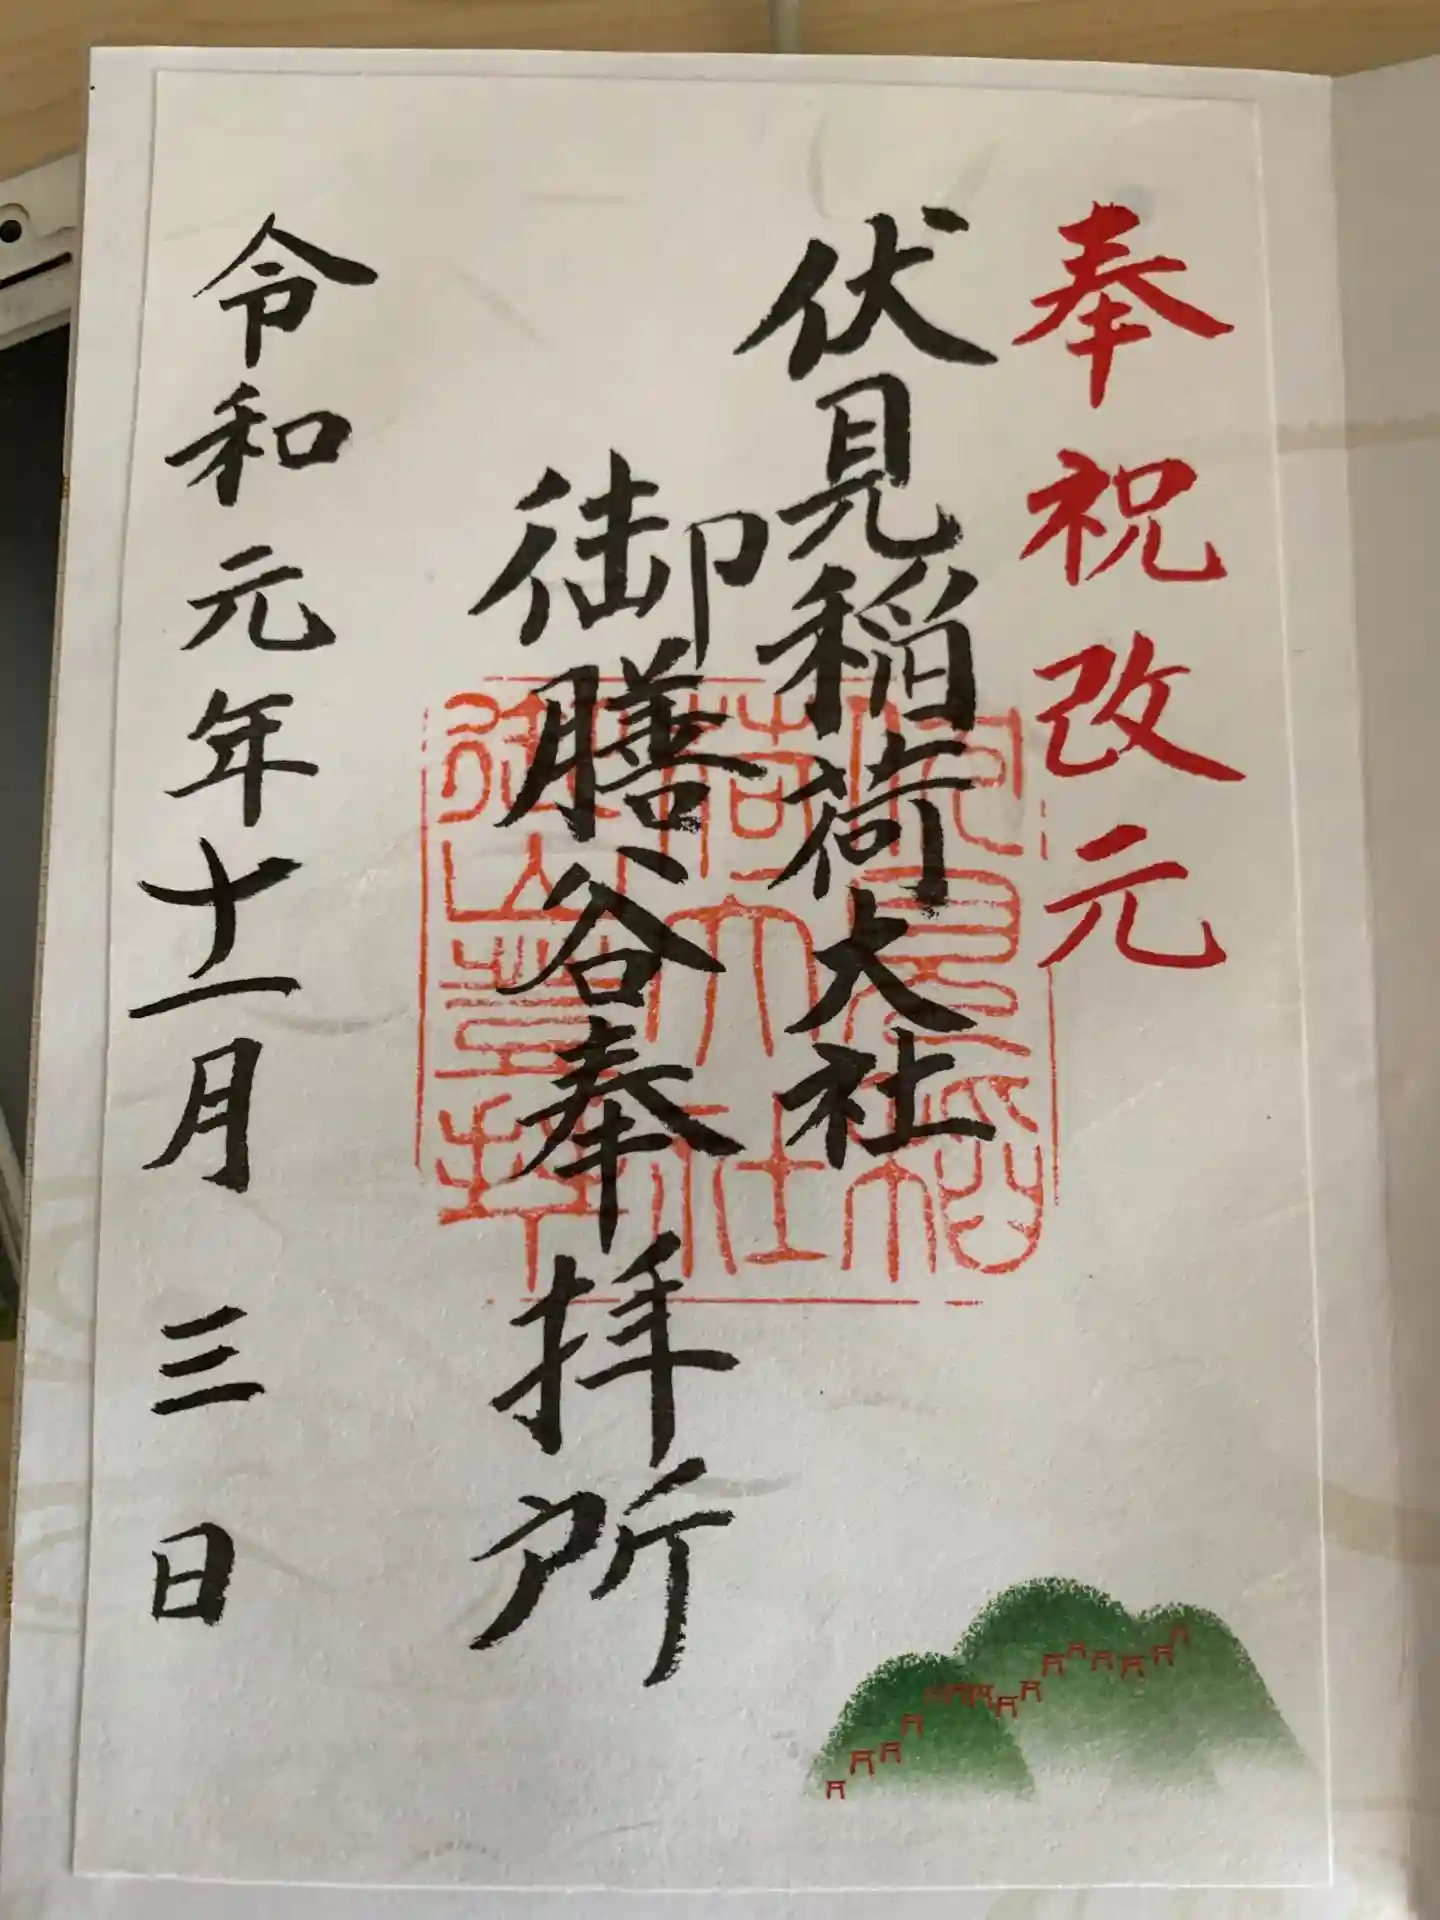 奉祝改元
伏見稲荷大社
御膳谷奉拝所
令和元年十一月三日